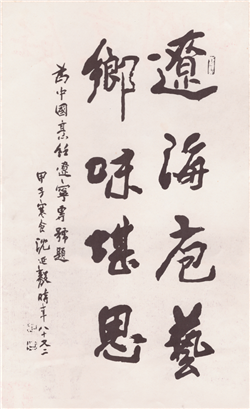 遼海庖藝
鄉味堪思
為中國烹飪遼寧專號題
甲子寒食沈延毅時年八十又二